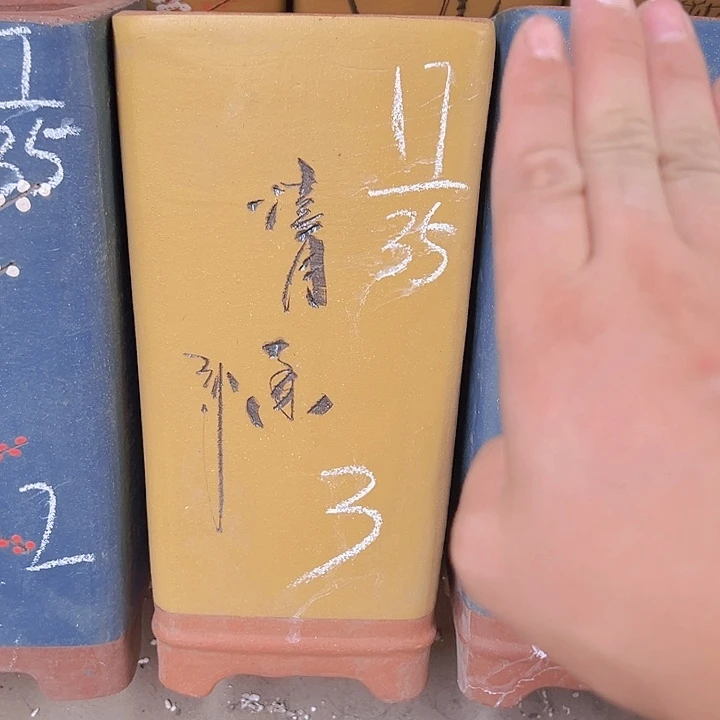 17
35
清
3
7
35
2